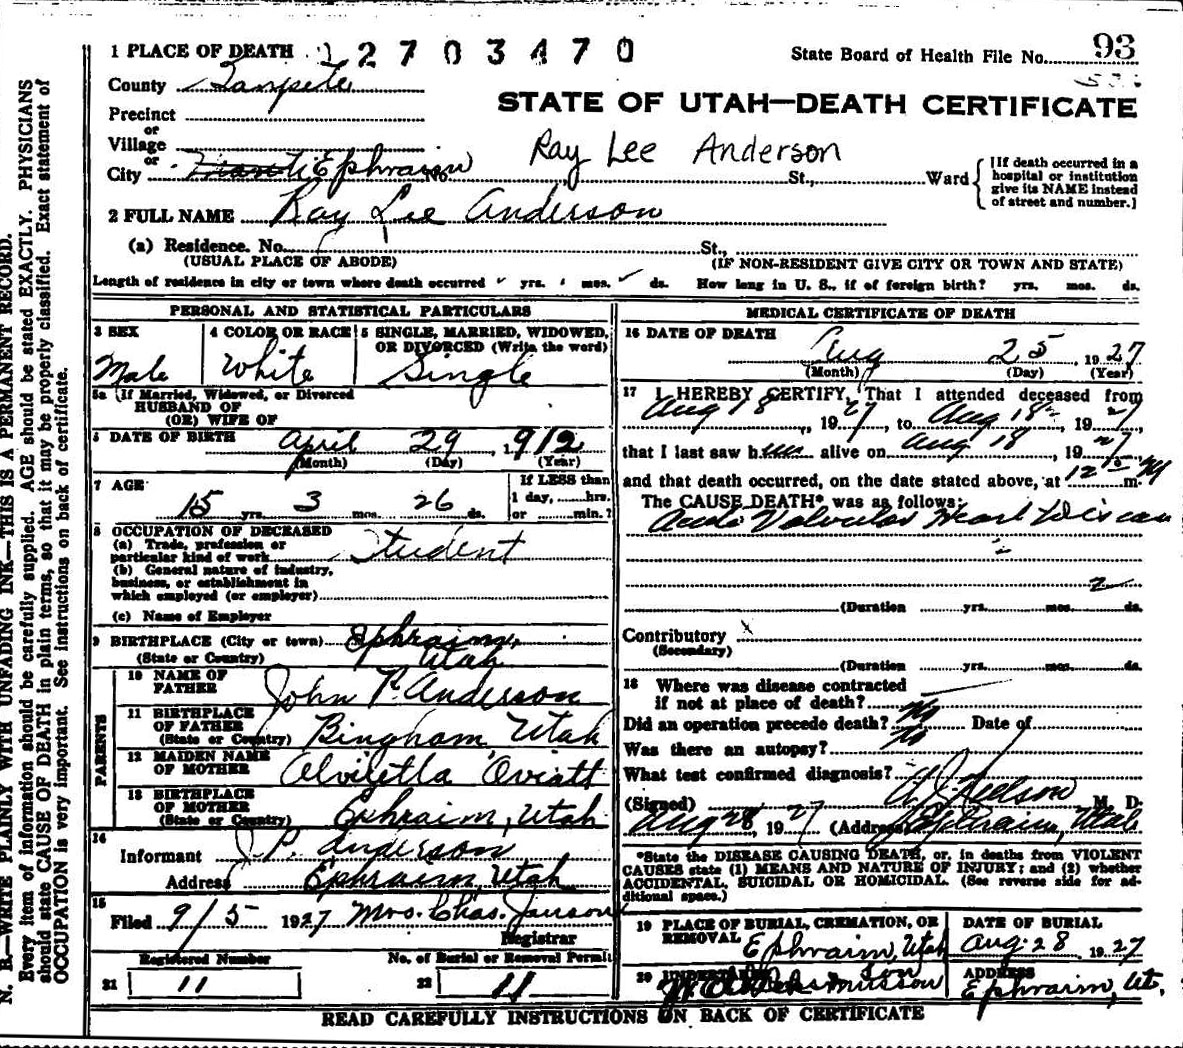 1 PLACE OF DEATH 12703470 State Board of Health File No. 93
County Sanpete
STATE OF UTAH—DEATH CERTIFICATE
Precinct
or
Village
or
City Manti Ephraim No. St., Ward
Ray Lee Anderson
[If death occurred in a
hospital or institution
give its NAME instead
of street and number.]
2 FULL NAME Ray Lee Anderson
(a) Residence. No. St.,
(USUAL PLACE OF ABODE) (IF NON-RESIDENT GIVE CITY OR TOWN AND STATE)
Length of residence in city or town where death occurred yrs. mos. ds. How long in U. S., if of foreign birth? yrs. mos. ds.
PERSONAL AND STATISTICAL PARTICULARS
3 SEX
Male
4 COLOR OR RACE
White
5 SINGLE, MARRIED, WIDOWED,
OR DIVORCED (Write the word)
Single
5a If Married, Widowed, or Divorced
HUSBAND OF
(OR) WIFE OF
6 DATE OF BIRTH April 29, 1912
(Month) (Day) (Year)
7 AGE
15 yrs. 3 mos. 26 ds.
If LESS than
1 day, ......hrs.
or ......min.?
8 OCCUPATION OF DECEASED
(a) Trade, profession or
particular kind of work Student
(b) General nature of industry,
business, or establishment in
which employed (or employer)
(c) Name of Employer
9 BIRTHPLACE (City or town) Ephraim,
(State or Country) Utah
PARENTS
10 NAME OF
FATHER John P. Anderson
11 BIRTHPLACE
OF FATHER
(State or Country) Bingham, Utah
12 MAIDEN NAME
OF MOTHER Alviletta Oviatt
13 BIRTHPLACE
OF MOTHER
(State or Country) Ephraim, Utah
14
Informant J. P. Anderson
Address Ephraim, Utah
15
Filed 9/5 1927 Mrs. Chas. Janson
Registrar
Registered Number No. of Burial or Removal Permit
21 11 22 11
MEDICAL CERTIFICATE OF DEATH
16 DATE OF DEATH
Aug 25, 1927
(Month) (Day) (Year)
17 I HEREBY CERTIFY, That I attended deceased from
Aug 18, 1927, to Aug 18, 1927,
that I last saw him alive on Aug 18, 1927
and that death occurred, on the date stated above, at 12 m.
The CAUSE DEATH* was as follows:
Acute Valvular Heart Disease
2
(Duration ......yrs. ......mos. ......ds.
Contributory x
(Secondary)
(Duration ......yrs. ......mos. ......ds.
18 Where was disease contracted
if not at place of death?
Did an operation precede death? No Date of
Was there an autopsy? No
What test confirmed diagnosis?
(Signed) Nelson M. D.
Aug 28, 1927 (Address) Ephraim, Utah
*State the DISEASE CAUSING DEATH, or, in deaths from VIOLENT
CAUSES state (1) MEANS AND NATURE OF INJURY; and (2) whether
ACCIDENTAL, SUICIDAL OR HOMICIDAL. (See reverse side for ad-
ditional space.)
19 PLACE OF BURIAL, CREMATION, OR
REMOVAL Ephraim, Utah
DATE OF BURIAL
Aug. 28 1927
20 UNDERTAKER
Rasmusson Son
ADDRESS
Ephraim, Ut.
READ CAREFULLY INSTRUCTIONS ON BACK OF CERTIFICATE
N. B.—WRITE PLAINLY WITH UNFADING INK—THIS IS A PERMANENT RECORD.
Every item of information should be carefully supplied. AGE should be stated EXACTLY. PHYSICIANS
should state CAUSE OF DEATH in plain terms, so that it may be properly classified. Exact statement of
OCCUPATION is very important. See instructions on back of certificate.